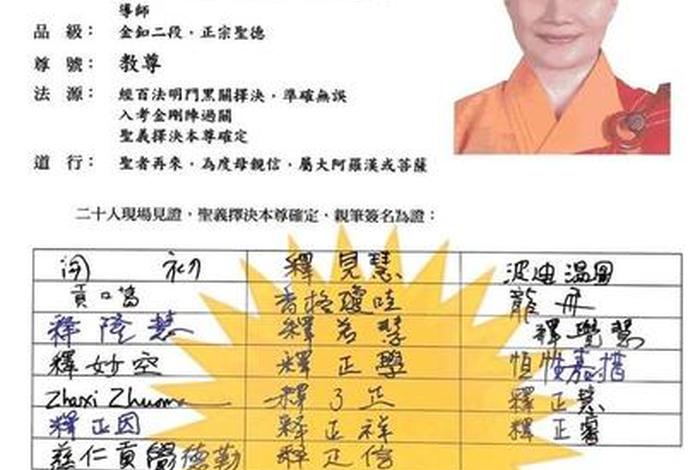 導師
品級：金釦二段，正宗聖德
尊號：教尊
法源：經百法明門黑關擇決，準確無誤
入考金剛陣過關
聖義擇決本尊確定
道行：聖者再來，為度母親信，屬大阿羅漢或菩薩
二十人現場見證，聖義擇決本尊確定、親筆簽名為證：
釋見慧 波迪溫圖
香格瓊哇 龍舟
釋隆慧 釋若慧 釋覺慧
釋妙空 釋正學 恒性嘉措
Zhaxi Zhuoma 釋了正 釋正慧
釋正因 釋正祥
慈仁貢覺德勤 釋正信